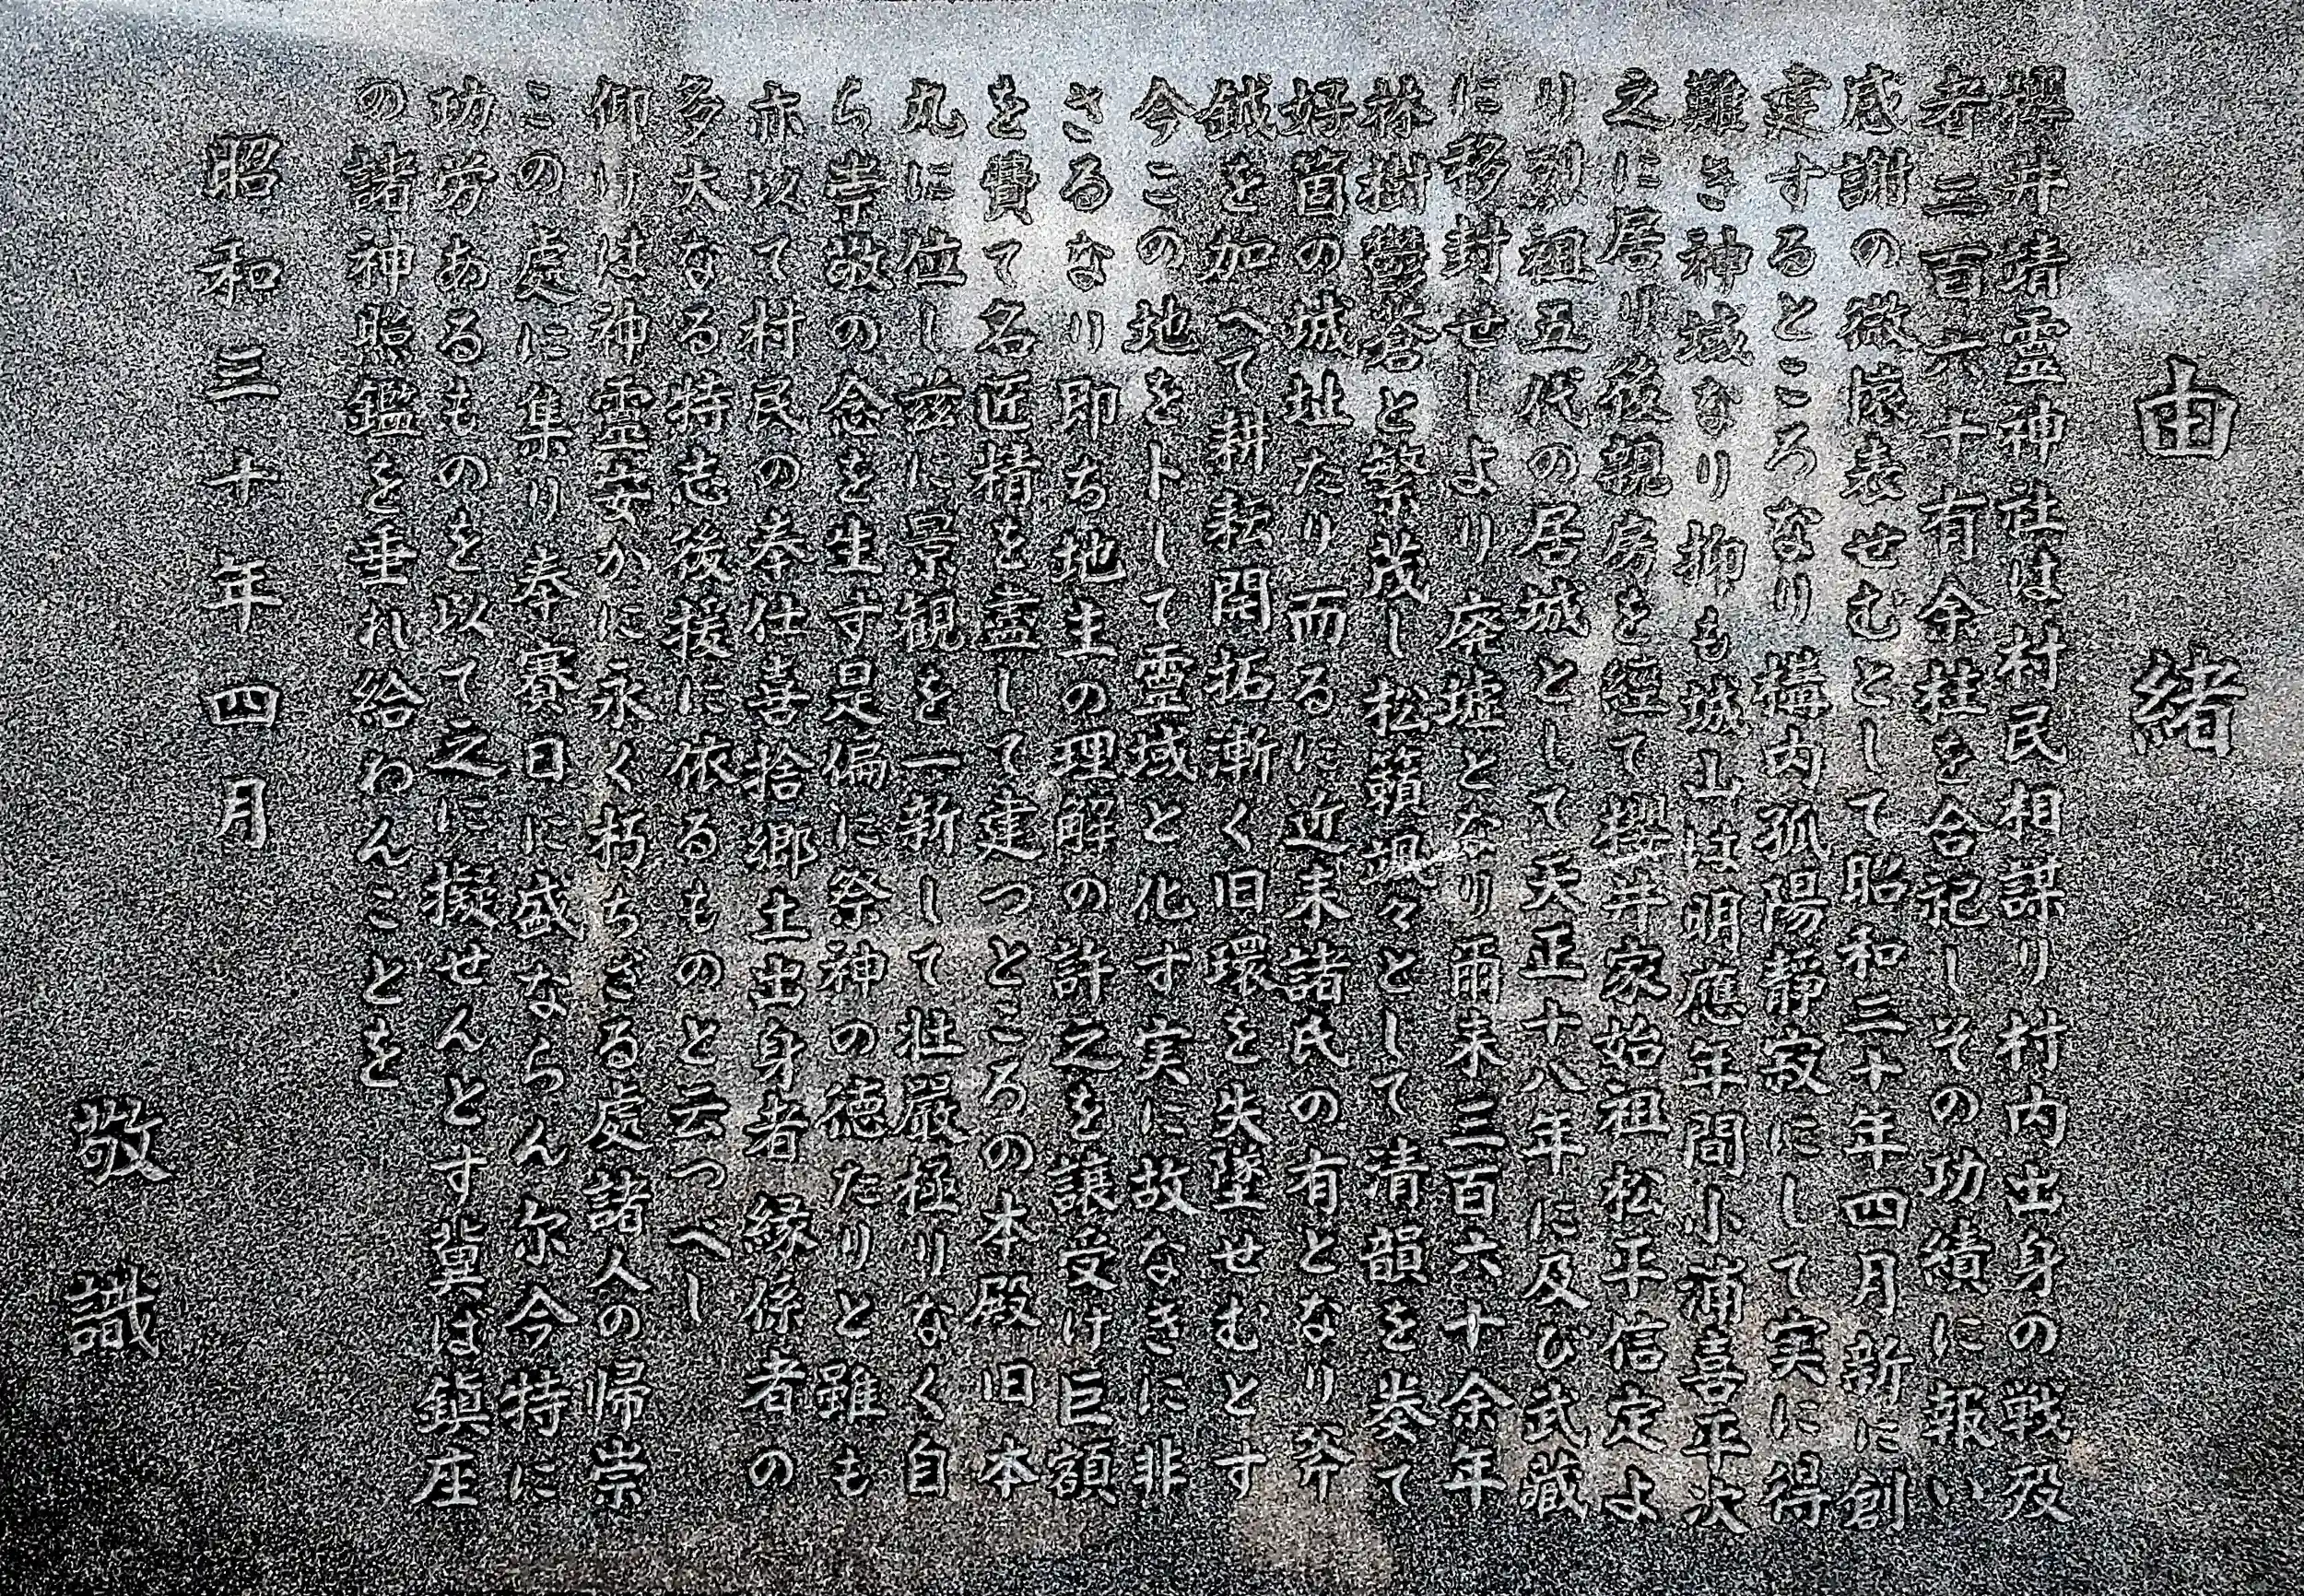 由緒
櫻井靖霊神社は村民相謀り村内出身の戦歿
者二百六十有余柱を合祀しその功績に報い
感謝の微懐表せむとして昭和三十年四月新に創
建するところなり搆内孤陽靜寂にして実に得
難き神域なり抑も城山は明應年間小浦喜平次
之に居り後親房を経て櫻井家始祖松平信定よ
り列祖五代の居城として天正十八年に及び武藏
に移封せしより廃墟となり爾来三百六十余年
椿樹鬱蒼と繁茂し松籟颯々として清韻を奏て
好箇の城址たり而るに近来諸民の有となり斧
鉞を加へて耕耘開拓漸く旧環を失墜せむとす
今この地を卜して霊域と化す実に故なきに非
さるなり即ち地主の理解の許之を譲受け巨額
を費て名匠精を盡して建つところの本殿旧本
丸に位し茲に景観を一新して壮嚴極りなく自
ら崇敬の念を生す是偏に祭神の徳たりと雖も
亦以て村民の奉仕喜捨郷土出身者縁係者の
多大なる特志後援に依るものと云つべし
仰りは神霊安かに永く朽ちざる處諸人の帰崇
この處に集り奉賽日に盛ならん尓今特に
功労あるものを以て之に擬せんとす冀は鎮庄
の諸神照鑑を垂れ給わんことを
昭和三十年四月
敬識